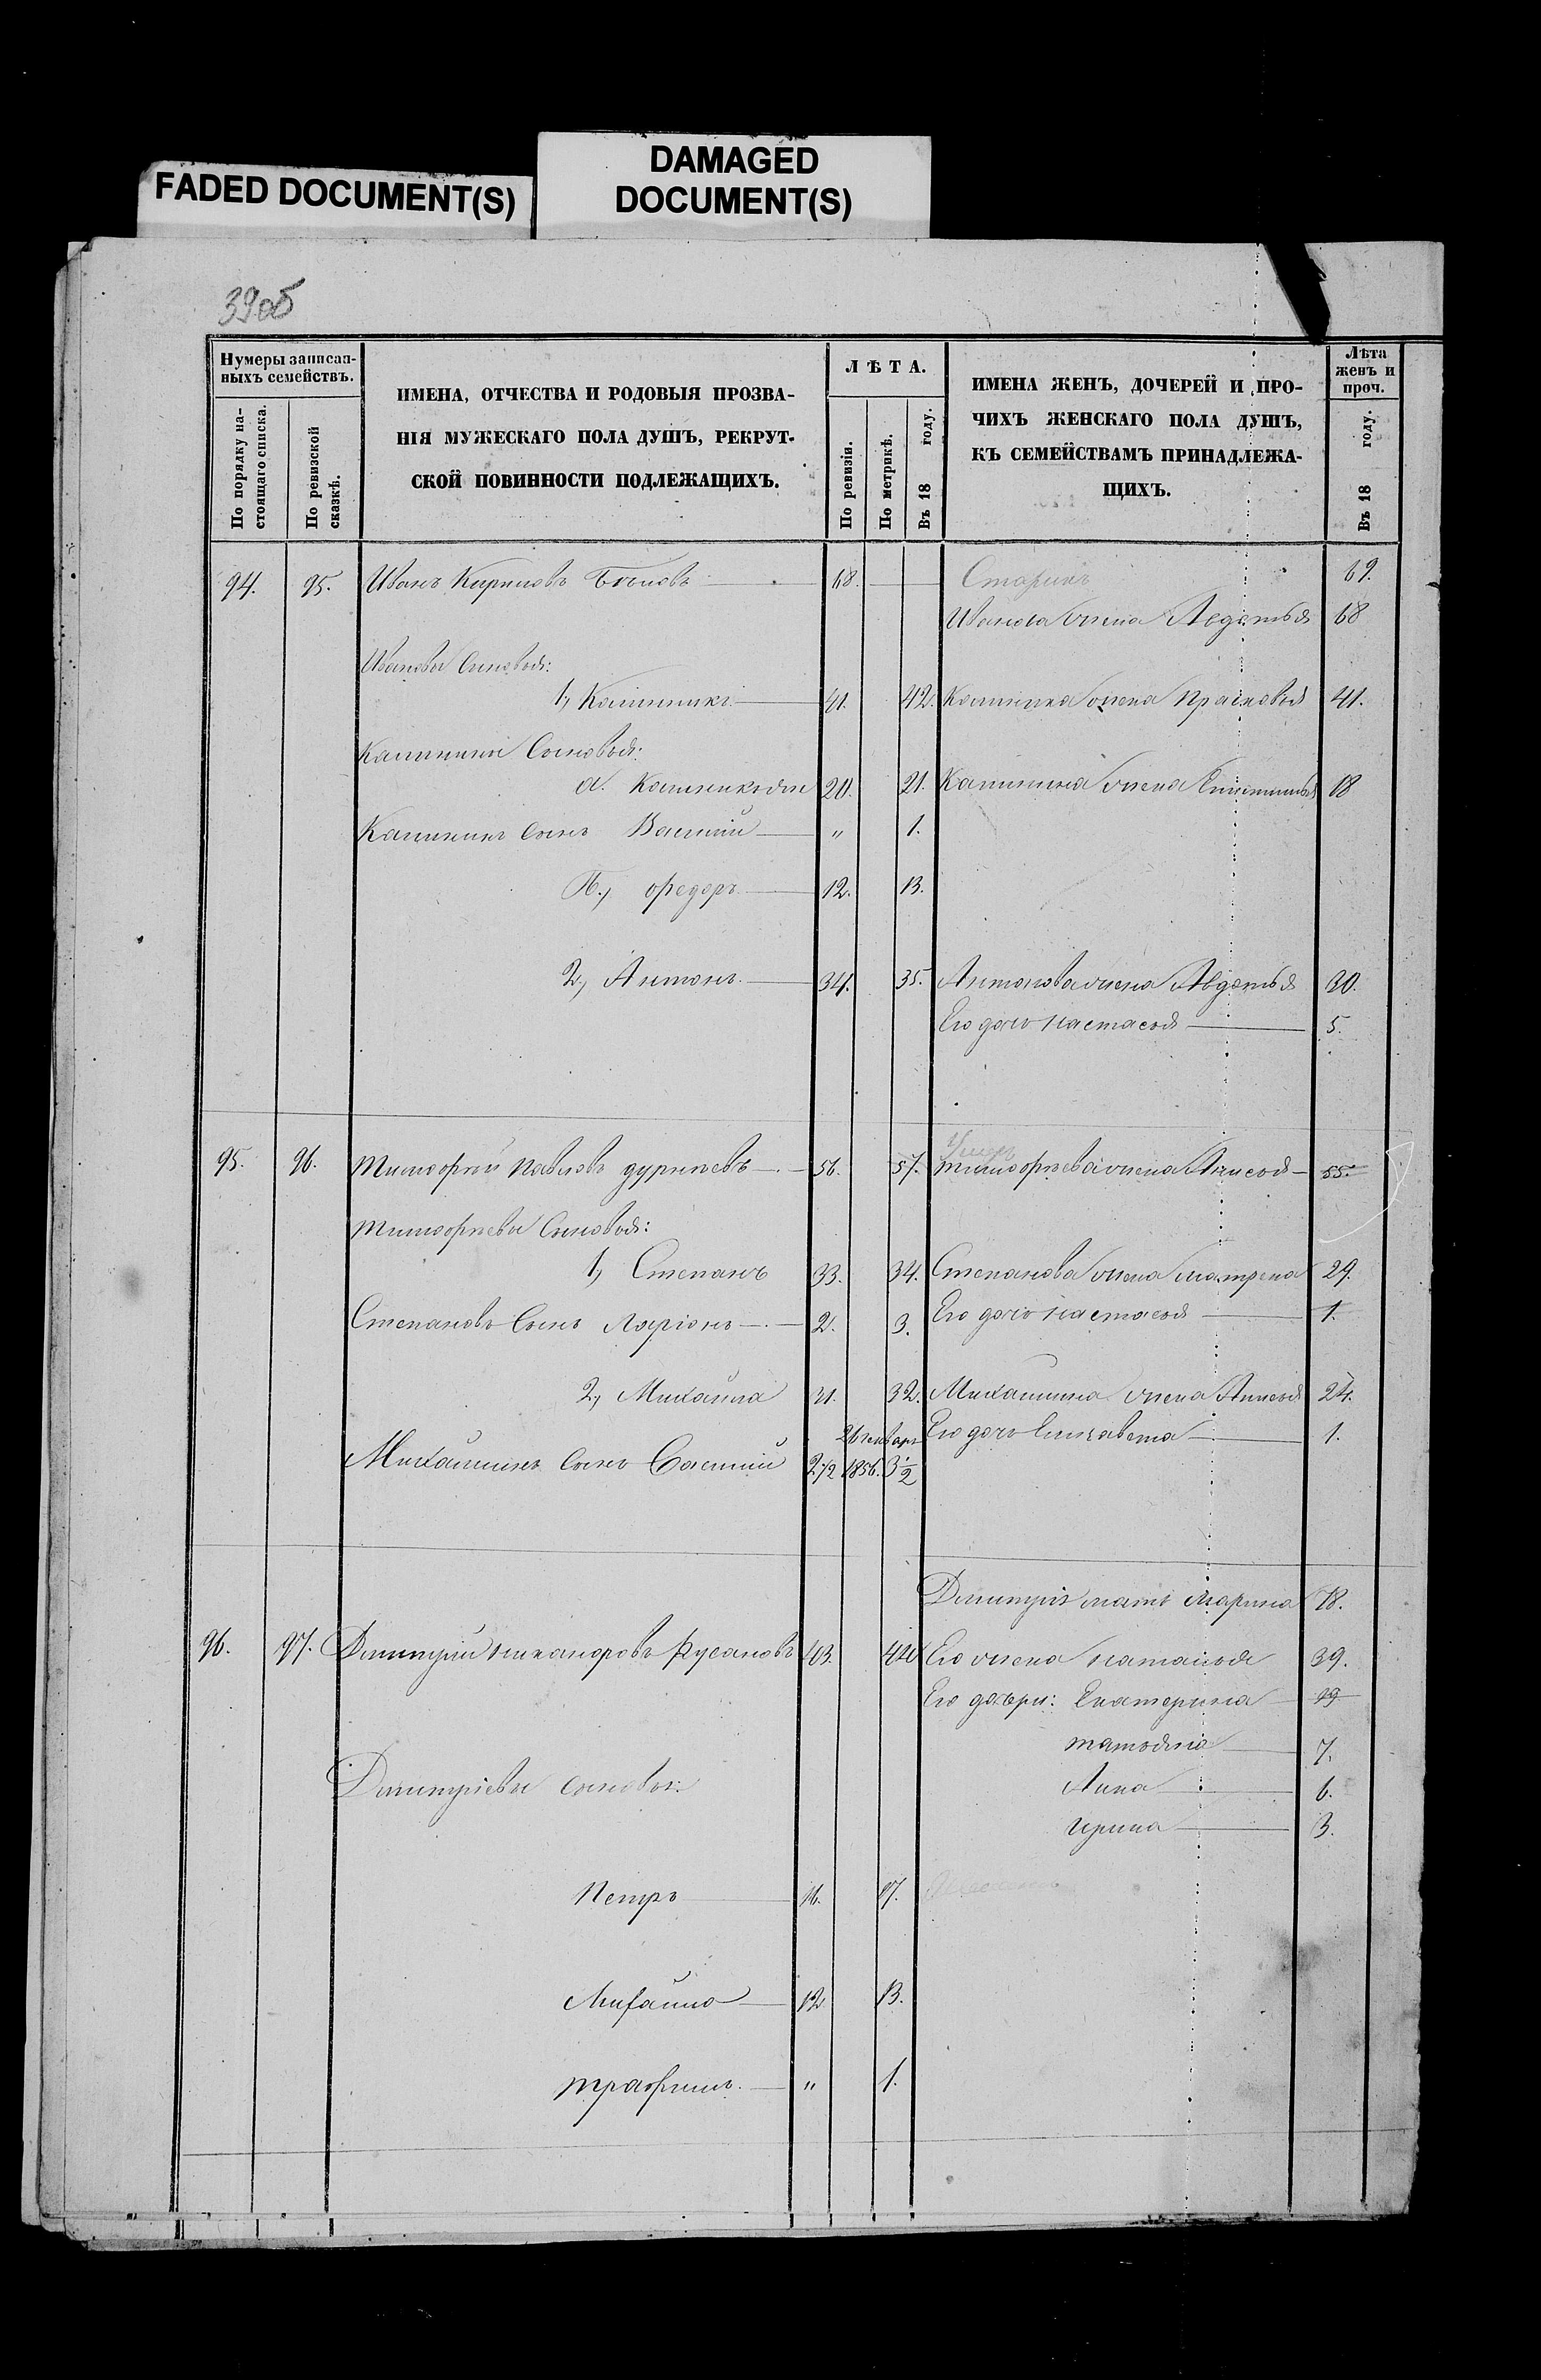 FADED DOCUMENT(S)
DAMAGED
DOCUMENT(S)
39об
Нумеры записан-
ныхъ семействъ.
По порядку на-
стоящаго списка.
По ревизской
сказкѣ.
ИМЕНА, ОТЧЕСТВА И РОДОВЫЯ ПРОЗВА-
НІЯ МУЖЕСКАГО ПОЛА ДУШЪ, РЕКРУТ-
СКОЙ ПОВИННОСТИ ПОДЛЕЖАЩИХЪ.
ЛѢТА.
По ревизіи.
По метрикѣ.
Въ 18 году.
ИМЕНА ЖЕНЪ, ДОЧЕРЕЙ И ПРО-
ЧИХЪ ЖЕНСКАГО ПОЛА ДУШЪ,
КЪ СЕМЕЙСТВАМЪ ПРИНАДЛЕЖА-
ЩИХЪ.
Лѣта
женъ и
проч.
Въ 18 году.
94. 95. Иванъ Кириловъ 68. Старикъ 69.
Иванова жена Авдотья 68
Ивановы Сыновья:
1, Калинникъ 41. 42. Калинина жена Прасковья 41.
Калинины Сыновья:
а. 20. 21. Калинина жена 18
Калининъ Сынъ Василій " 1.
Б., Федоръ 12. 13.
2, Антонъ 34. 35. Антонова жена Авдотья 30.
Его дочь Настасья 5.
Умер
95. 96. Тимофей Павловъ 56. 57. Тимофеева жена Анисья 55.
Тимофеевы Сыновья:
1, Степанъ 33. 34. Степанова жена Матрена 29.
Степановъ Сынъ Ларіонъ 2. 3. Его дочь Настасья 1.
2, Михайла 31. 32. Михайлина жена Анисья 24.
26 генваря Его дочь Елизавета 1.
Михайлинъ Сынъ Василий 2 1/2 1856. 3 1/2
Димитрія мать Марина 78.
96. 97. Димитрий Никаноровъ Русановъ 43. 44 Его жена Наталья 39.
Его дочери: Екатерина 19
Татьяна 7.
Димитріевы сыновья: Анна 6.
Ирина 3.
Петръ 16. 17.
Михайло 12 13.
Трафимъ. " 1.